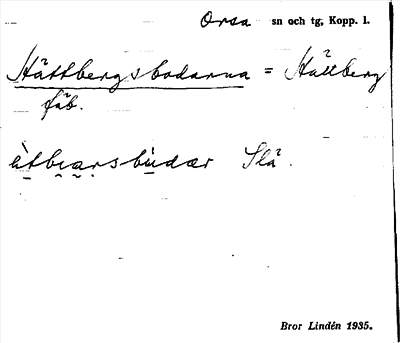 Orsa sn och tg, Kopp. l.
Hättbergsbodarna = Hättberg
fäb.
Slä.
Bror Lindén 1935.